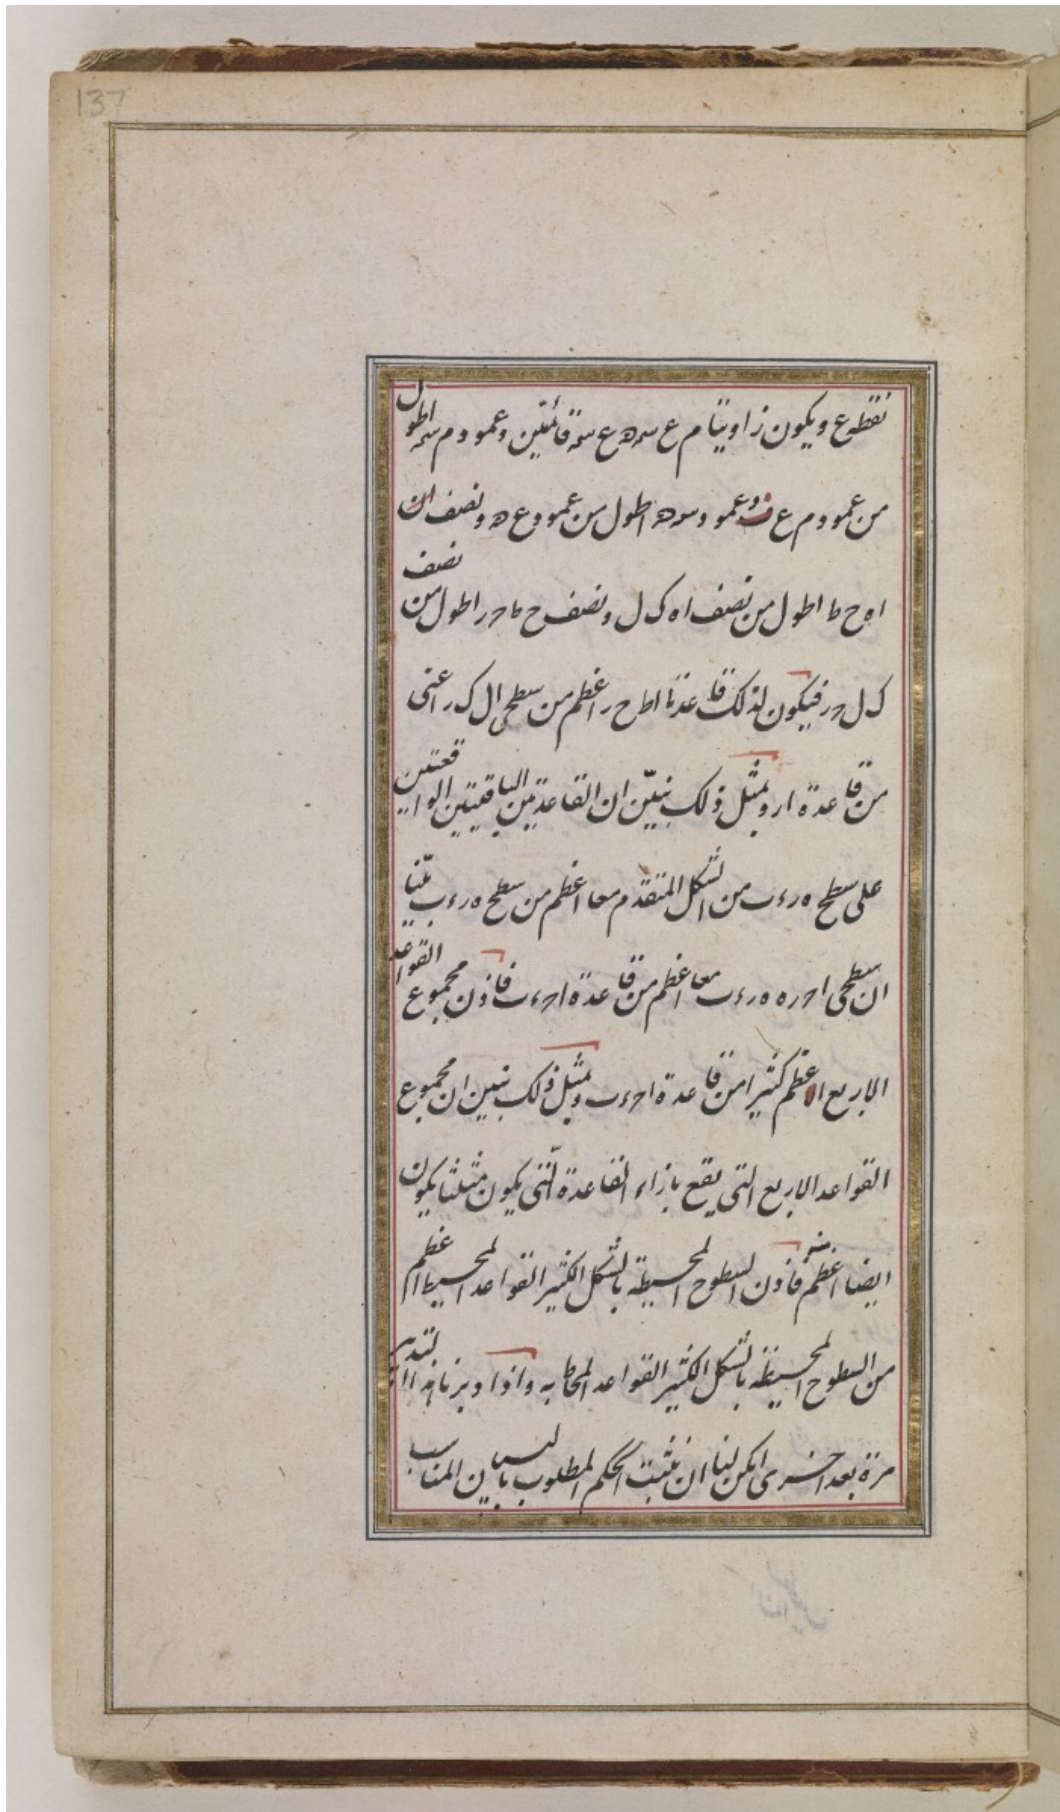 137
نقطع ويكون زاويتا م ع سه ه ع سه قائمتين وعمود م سه اطول
من عمود م ع ف وعمود سه ه اطول من عمود ع ه ونصف ان
اه ح ط اطول من نصف اه ك ل ونصف ح ط حر اطول من نصف
ك ل حر فيكون لذلك قاعدتا اط ح ر اعظم من سطحى ال ك ر اعنى
من قاعدة ار وبمثل ذلك نبيّن ان القاعدتين الباقيتين الواقعتين
على سطح ه ر ء ب من الشكل المتقدم معا اعظم من سطح ه ر ء ب بيّنا
ان سطحى احره ه ر ء ب معا اعظم من قاعدة احء ب فاذن مجموع القواعد
الاربع اعظم كثيرا من قاعدة احء ب وبمثل ذلك نبين ان مجموع
القواعد الاربع التى يقع بازاء القاعدة الّتى يكون مثلثا يكون
ايضا اعظم منه فاذن السطوح المحيطة بالشكل الكثير القواعد المحيط اعظم
من السطوح المحيطة بالشكل الكثير القواعد المحاط به واذا دبرنا هذا التدبير
مرة بعد اخرى امكن لنا ان نثبت الحكم المطلوب بالبين المناسب